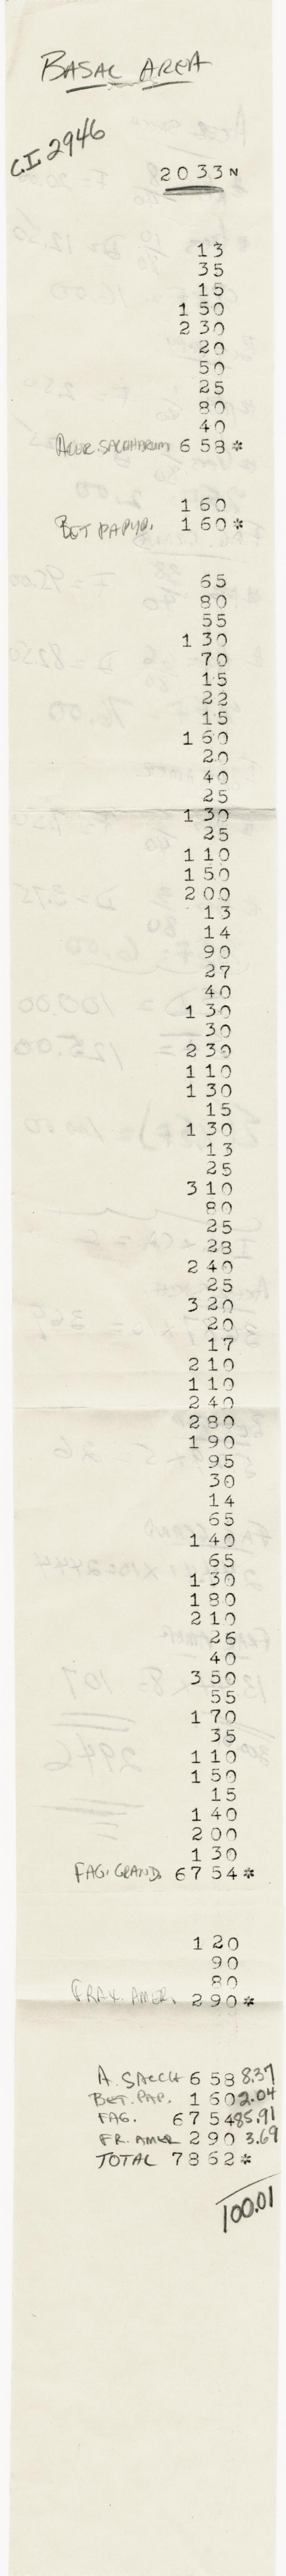 BASAL AREA
C.I. 2946
2033 N
13
35
15
150
230
20
50
25
80
40
ACER. SACCHARUM 658*
160
BET PAPYR. 160*
65
80
55
130
70
15
22
15
160
20
40
25
130
25
110
150
200
13
14
90
27
40
130
30
230
110
130
15
130
13
25
310
80
25
28
240
25
320
20
17
210
110
240
280
190
95
30
14
65
140
65
130
180
210
26
40
350
55
170
35
110
150
15
140
200
130
FAG. GRAND. 6754*
120
90
80
FRAX. AMER. 290*
A. SACCH 658 8.37
BET. PAP. 160 2.04
FAG. 6754 85.91
FR. AMER 290 3.69
TOTAL 7862*
100.01